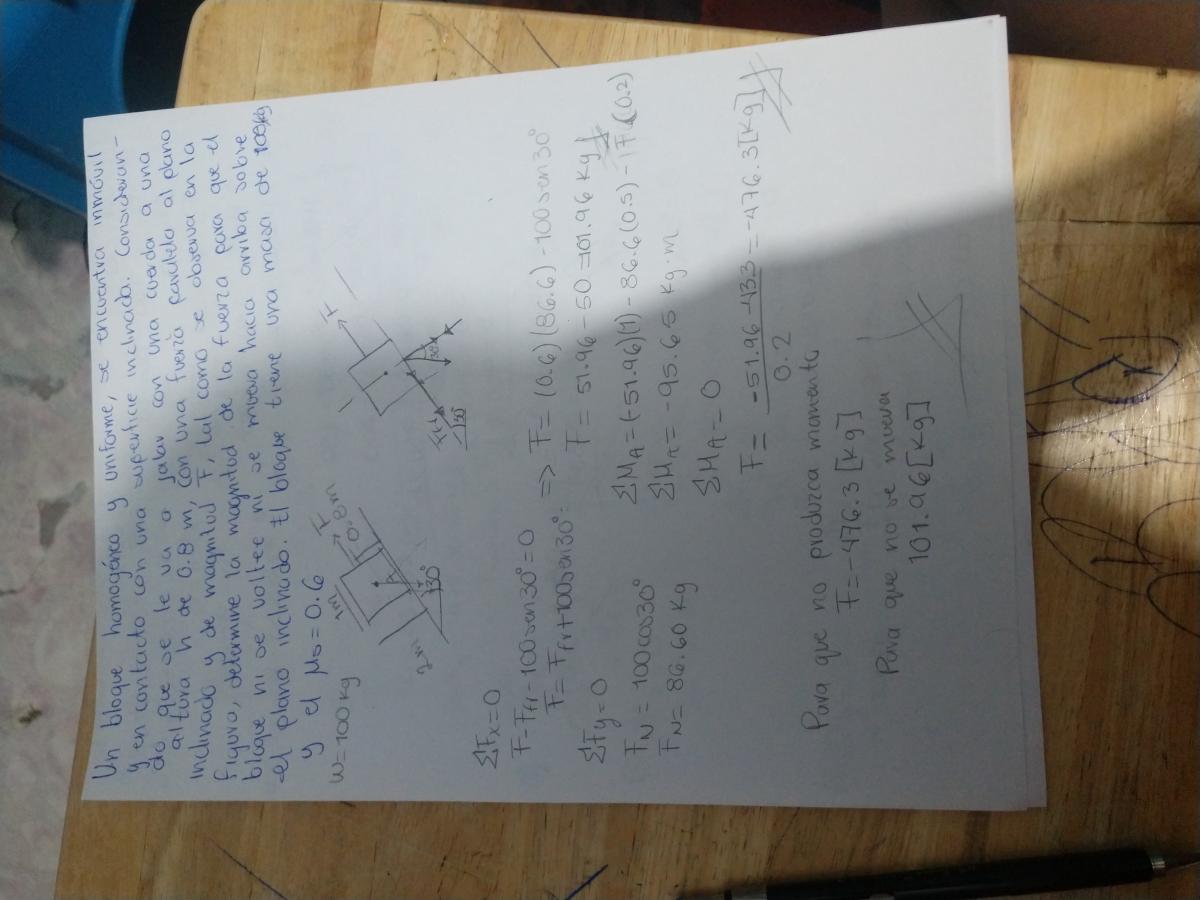 Un bloque homogénico y uniforme, se encuentra inmóvil
y en contacto con una superficie inclinada. Consideran-
do que se le va a jalar con una cuerda a una
altura h de 0.8 m, con una fuerza paralela al plano
inclinado y de magnitud F, tal como se observa en la
figura, determine la magnitud de la fuerza para que el
bloque ni se voltee ni se mueva hacia arriba sobre
el plano inclinado. El bloque tiene una masa de 100kg
y el μs=0.6
W=100 kg
1m
F
0.8m
2m
A
30°
F
Ffr
30°
30°
ΣFx=0
F-Ffr-100sen30°=0
F=Ffr+100sen30°
=> F=(0.6)(86.6)-100sen30°
F=51.96-50=101.96 kg
ΣFy=0
FN=100cos30°
FN=86.60 Kg
ΣMA=(-51.96)(1)-86.6(0.5)-F(0.2)
ΣMA=-95.65 Kg·m
ΣMA=0
F= -51.96-433 =-476.3[Kg]
0.2
Para que no produzca momento
F=-476.3[Kg]
Para que no se mueva
101.96[Kg]